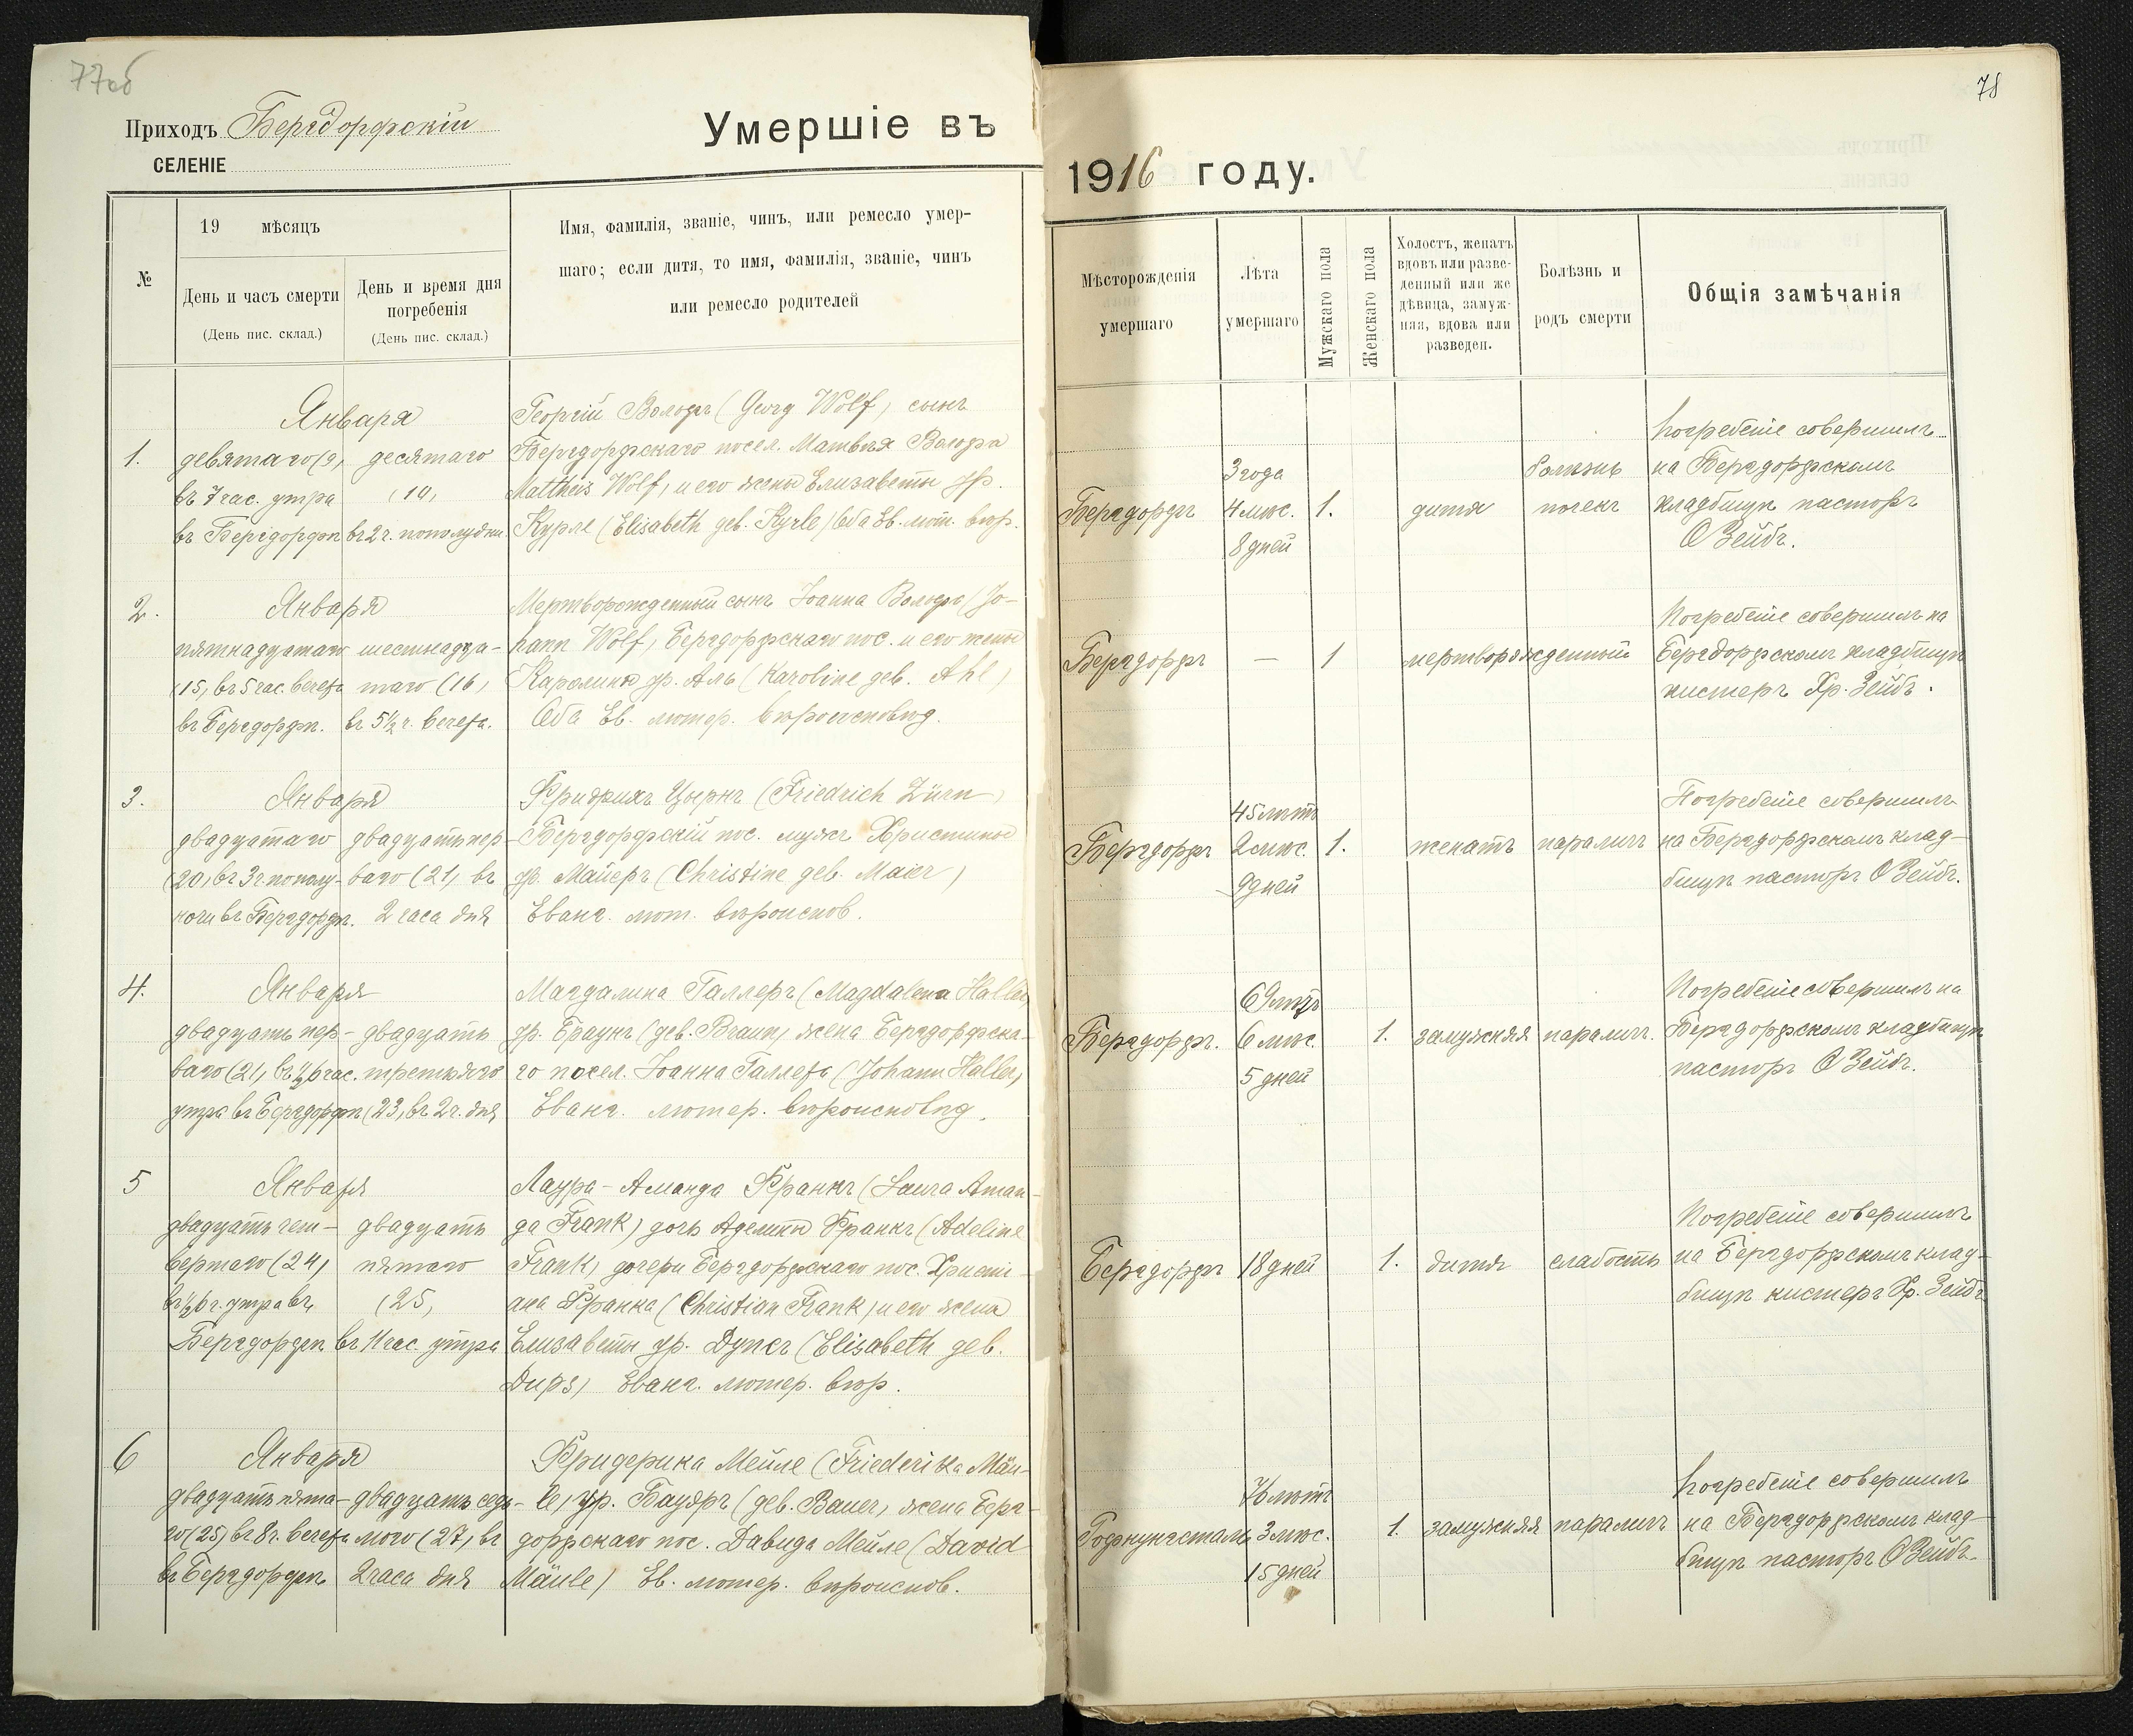 77об
Приходъ Бергдорфскій
СЕЛЕНІЕ
Умершіе въ
№
19 мѣсяцъ
День и часъ смерти
(День пис. склад.)
День и время дня
погребенія
(День пис. склад.)
Имя, фамилія, званіе, чинъ, или ремесло умер-
шаго; если дитя, то имя, фамилія, званіе, чинъ
или ремесло родителей
1.
Января
девятаго (9)
въ 7 час. утра
въ Бергдорфѣ
десятаго
(10)
въ 2 ч. пополудни
Георгій Вольфъ (Georg Wolf) сынъ
Бергдорфскаго посел. Матвѣя Вольфа
Mattheis Wolf) и его жены Елизаветы ур.
Курле (Elisabeth geb. Kyrle) Оба Ев. лют. вѣр.
2.
Января
пятнадцатаго
(15) въ 5 час. вечера
въ Бергдорфѣ.
шестнадца-
таго (16)
въ 5½ ч. вечера.
Мертворожденный сынъ Іоанна Вольфъ (Jo-
hann Wolf) Бергдорфскаго пос. и его жены
Каролины ур. Аль (Karoline geb. Ahl)
Оба Ев. лютер. вѣроисповѣд.
3.
Января
двадцатаго
(20) въ 3 ч. полу-
ночи въ Бергдорфѣ.
двадцать пер-
ваго (21) въ
2 часа дня
Фридрихъ Цырнъ (Friedrich Zürn)
Бергдорфскій пос. мужъ Христины
ур. Майеръ (Christine geb. Maier)
Еванг. лют. вѣроиспов.
4.
Января
двадцать пер-
ваго (21) въ ½6 час.
утра въ Бергдорфѣ
двадцать
третьяго
(23) въ 2 ч. дня
Магдалина Галлеръ (Magdalena Haller)
ур. Браунъ (geb. Braun) жена Бергдорфска-
го посел. Іоанна Галлера (Johann Haller)
Еванг. лютер. вѣроисповѣд.
5
Января
двадцать чет-
вертаго (24)
въ ½6 ч. утра въ
Бергдорфѣ
двадцать
пятаго
(25)
въ 11 час. утра
Лаура-Аманда Франкъ (Laura Aman-
da Frank) дочь Аделины Франкъ (Adeline
Frank) дочери Бергдорфскаго пос. Христи-
ана Франка (Christian Frank) и его жены
Елизаветы ур. Дупсъ (Elisabeth geb.
Dups) Еванг. лютер. вѣр.
6
Января
двадцать пята-
го (25) въ 8 ч. вечера
въ Бергдорфѣ
двадцать седь-
мого (27) въ
2 часа дня
Фридерика Мейле (Friederika Mäu-
le) ур. Бауэръ (geb. Bauer) жена Берг-
дорфскаго пос. Давида Мейле (David
Mäule) Ев. лютер. вѣроиспов.
78
1916 году.
Мѣсторожденія
умершаго
Лѣта
умершаго
Мужскаго пола
Женскаго пола
Холостъ, женатъ
вдовъ или разве-
денный или же
дѣвица, замуж-
няя, вдова или
разведен.
Болѣзнь и
родъ смерти
Общія замѣчанія
Бергдорфъ
3 года
4 мѣс.
8 дней
1.
дитя
болѣзнь
почекъ
Погребеніе совершилъ
на Бергдорфскомъ
кладбищѣ пасторъ
О Зейбъ.
Бергдорфъ
—
1
мертворожденный
Погребеніе совершилъ на
Бергдорфскомъ кладбищѣ
кистеръ Хр. Зейбъ.
Бергдорфъ
45 лѣтъ
2 мѣс.
9 дней
1.
женатъ
параличъ
Погребеніе совершилъ
на Бергдорфскомъ клад-
бищѣ пасторъ О Зейбъ.
Бергдорфъ.
69 лѣтъ
6 мѣс.
5 дней
1.
замужняя
параличъ.
Погребеніе совершилъ на
Бергдорфскомъ кладбищѣ
пасторъ О Зейбъ.
Бергдорфъ
18 дней
1.
дитя
слабость
Погребеніе совершилъ
на Бергдорфскомъ клад-
бищѣ кистеръ Хр. Зейбъ
Гофнунгсталь
76 лѣтъ
3 мѣс.
15 дней
1.
замужняя
параличъ
Погребеніе совершилъ
на Бергдорфскомъ клад-
бищѣ пасторъ О Зейбъ.